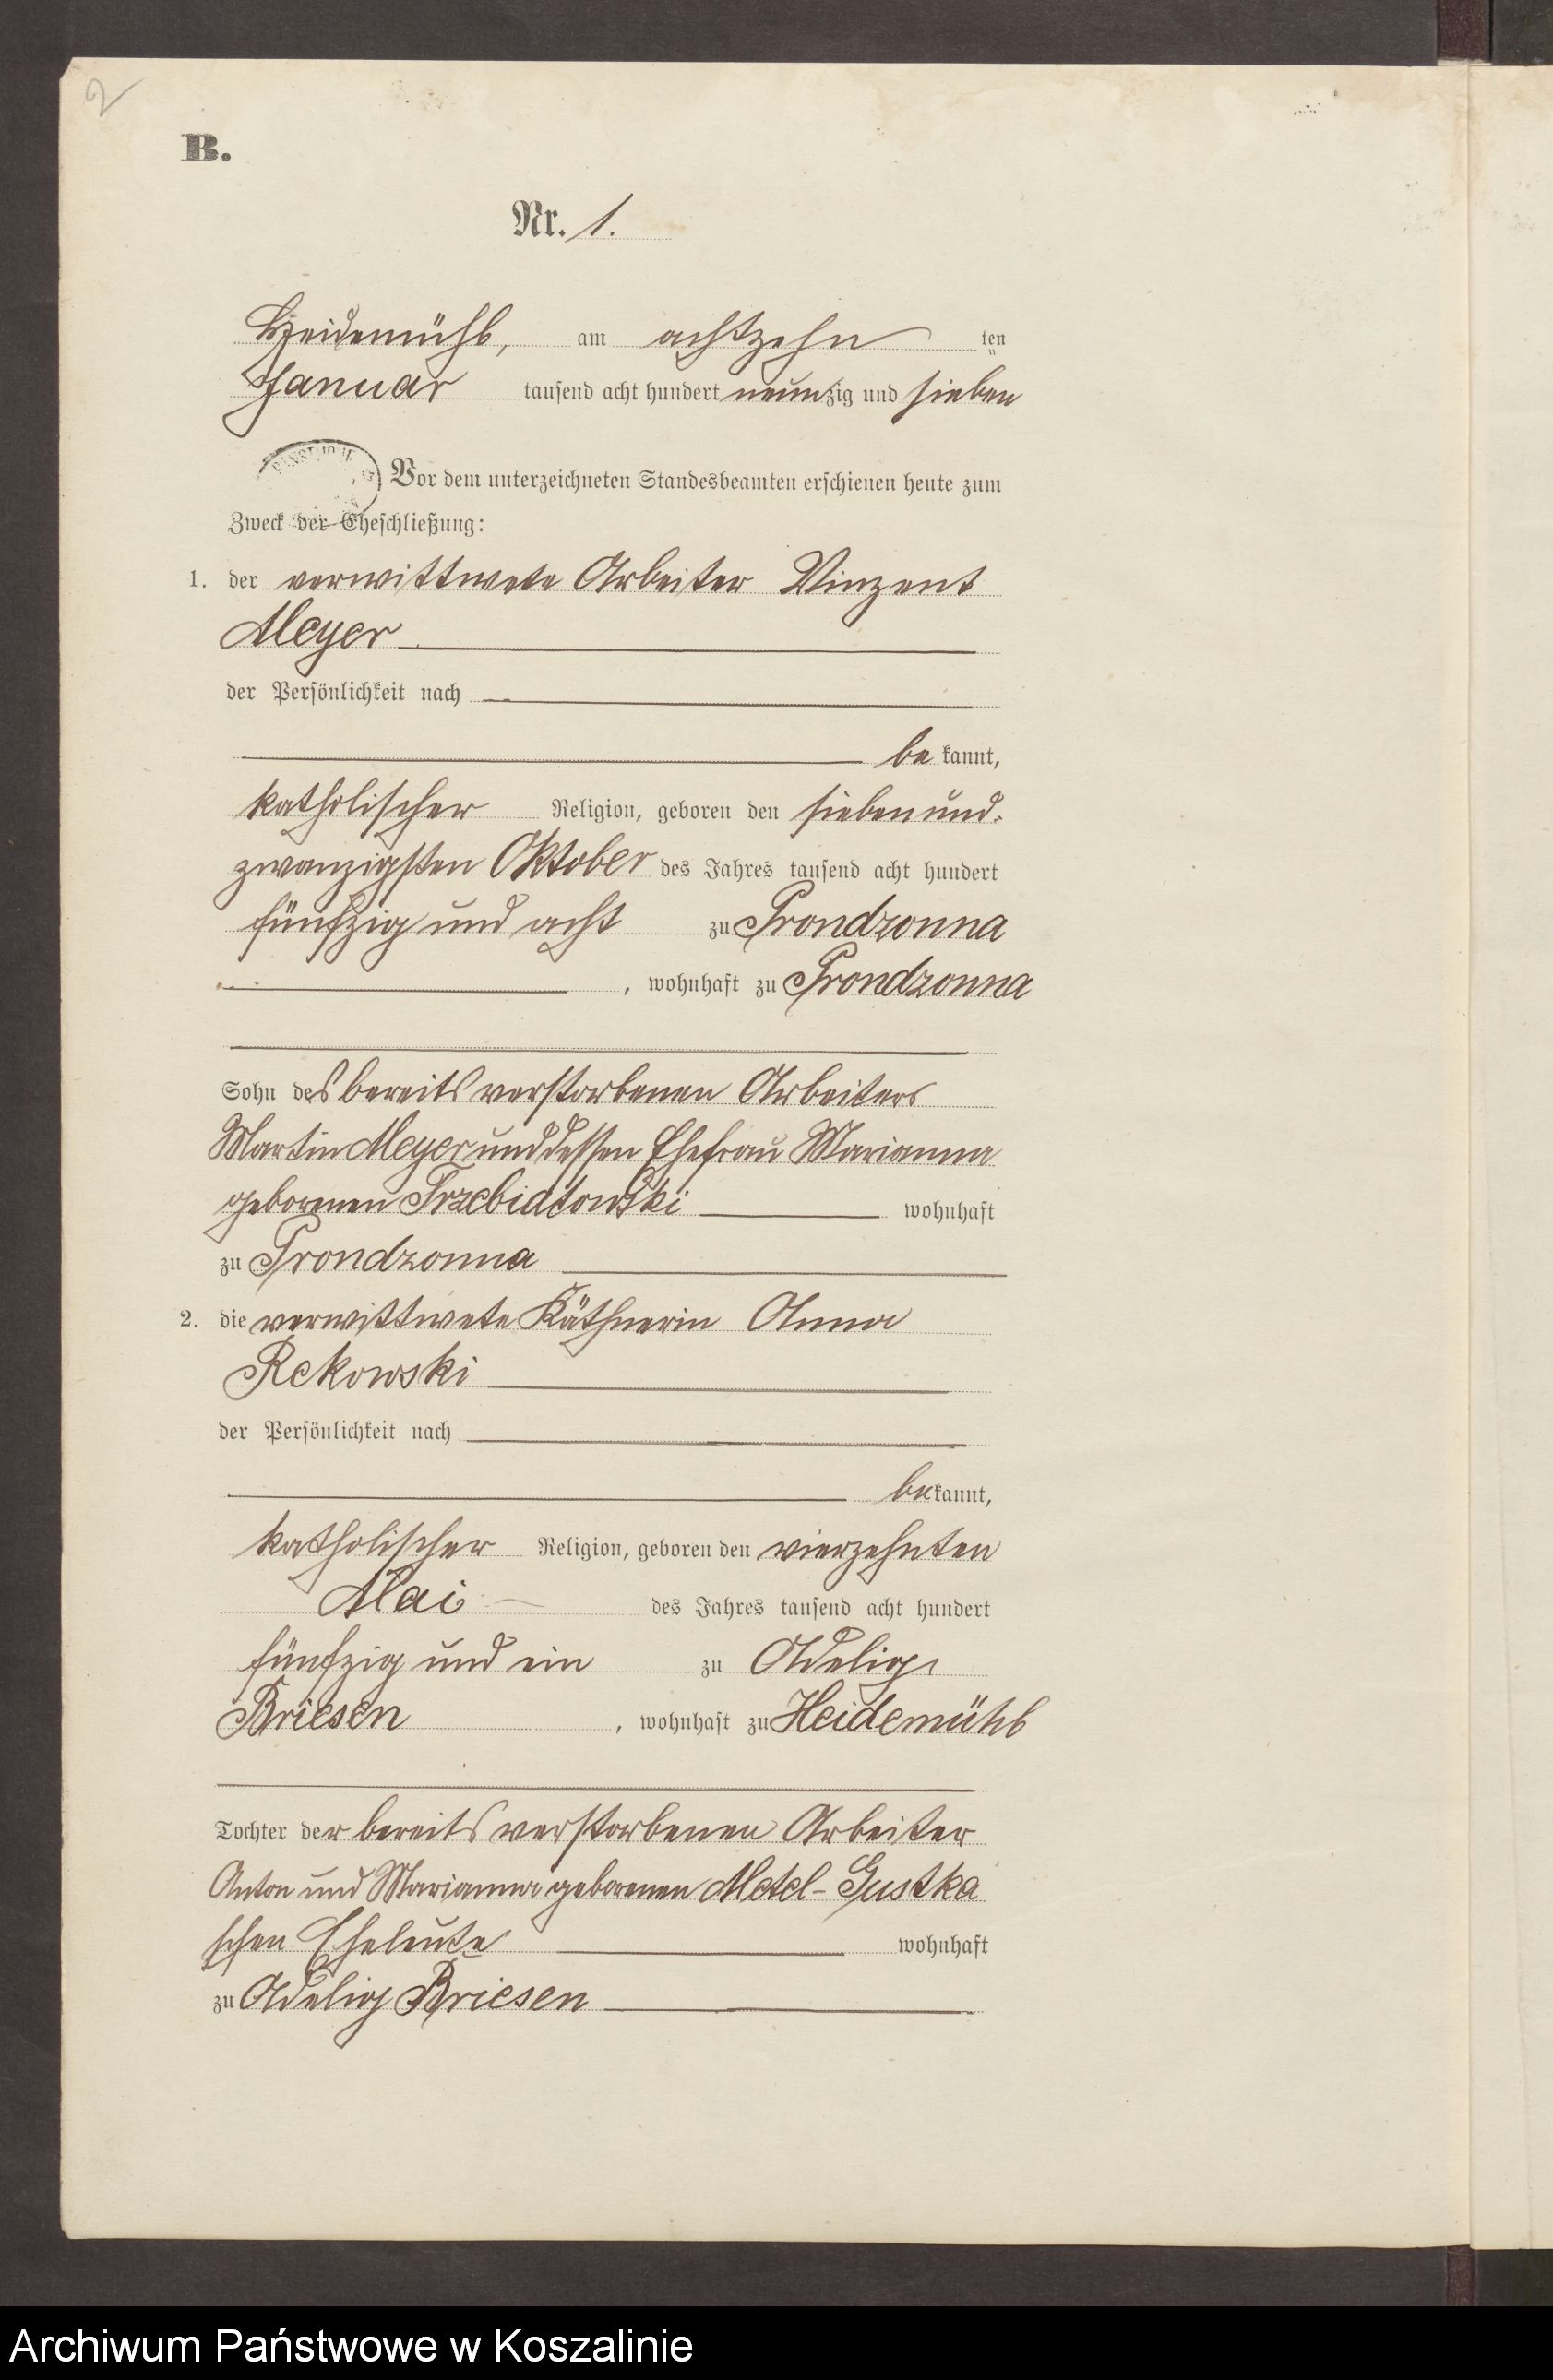 2
B.
Nr. 1.
Heidemühl, am achtzehn ten
Januar tausend acht hundert neunzig und sieben
Vor dem unterzeichneten Standesbeamten erschienen heute zum
Zweck der Eheschließung:
1. der verwittwete Arbeiter Vinzent
Meyer
der Persönlichkeit nach
be kannt,
katholischer Religion, geboren den siebenund-
zwanzigsten Oktober des Jahres tausend acht hundert
fünfzig und acht zu Prondzonna
, wohnhaft zu Prondzonna
Sohn des bereits verstorbenen Arbeiters
Martin Meyer und dessen Ehefrau Marianna
geborenen Trzebiatowski wohnhaft
zu Prondzonna
2. die verwittwete Käthnerin Anna
Rekowski
der Persönlichkeit nach
bekannt,
katholischer Religion, geboren den vierzehnten
Mai des Jahres tausend acht hundert
fünfzig und ein zu Adelig
Briesen , wohnhaft zu Heidemühl
Tochter der bereits verstorbenen Arbeiter
Anton und Marianna geborenen Metel-Gustka
schen Eheleute wohnhaft
zu Adelig Briesen
Archiwum Państwowe w Koszalinie